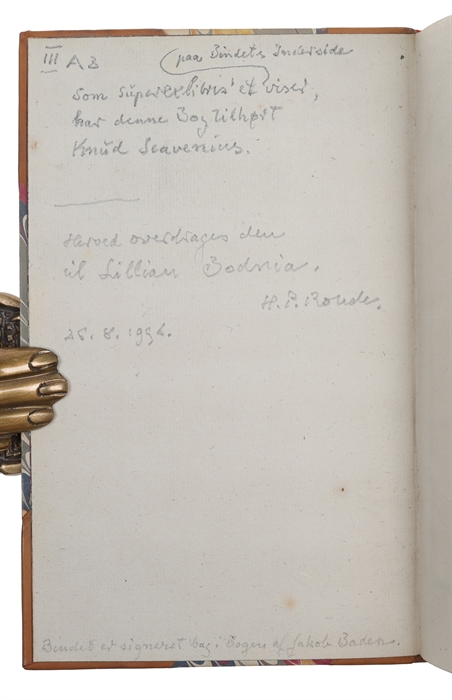 III AB
(paa Bindets Inderside
som superexlibris'et viser,
har denne Bog tilhørt
Knud Scavenius.
Herved overdrages den
til Lillian Bodnia.
H. P. Rohde.
25. 8. 1992.
Bindet er signeret bag i bogen af Jakob Baden.